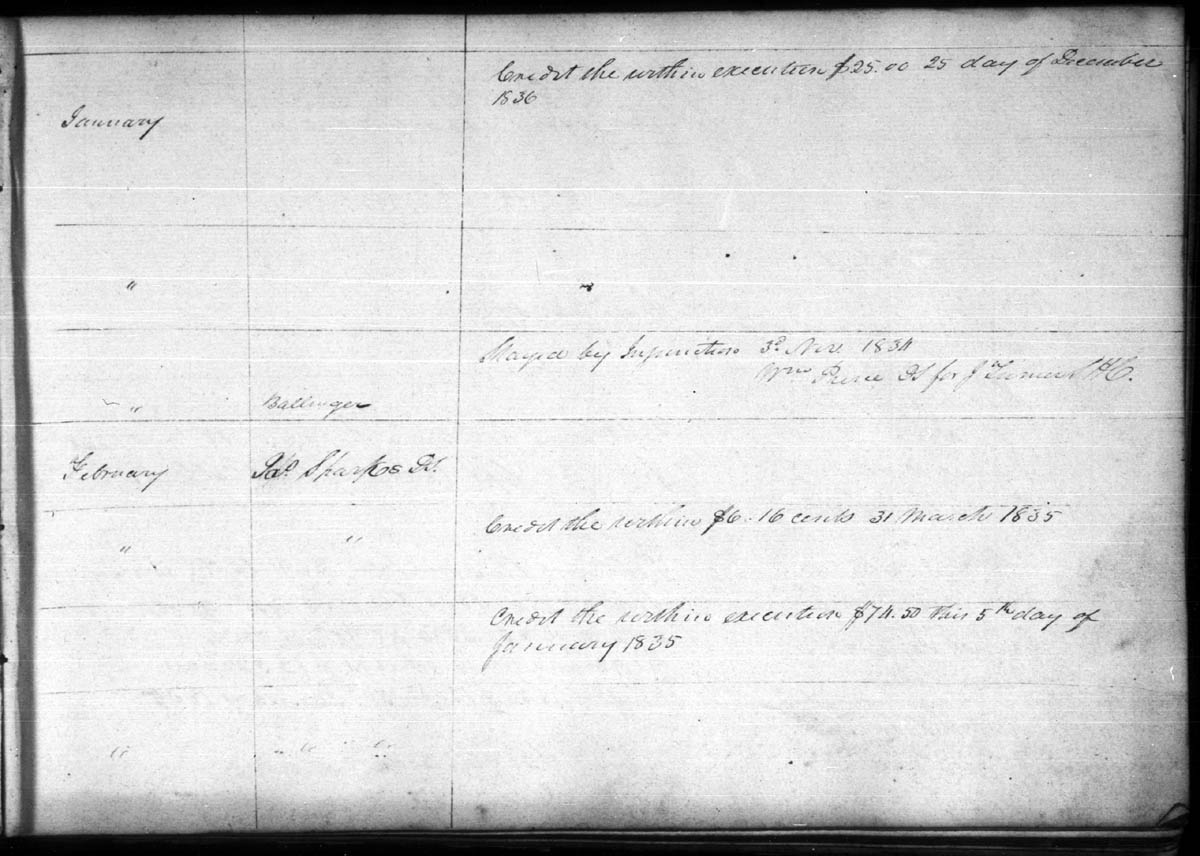 Credit the within execution $25.00 25 day of December
1836
January
" "
Stayed by Injunction 3d Nov. 1834
Wm Pierce DS for J Turner SHC.
" Ballinger
February Jas. Sparks DS.
Credit the within $6.16 cents 31 March 1835
" "
Credit the within execution $74.50 this 5th day of
January 1835